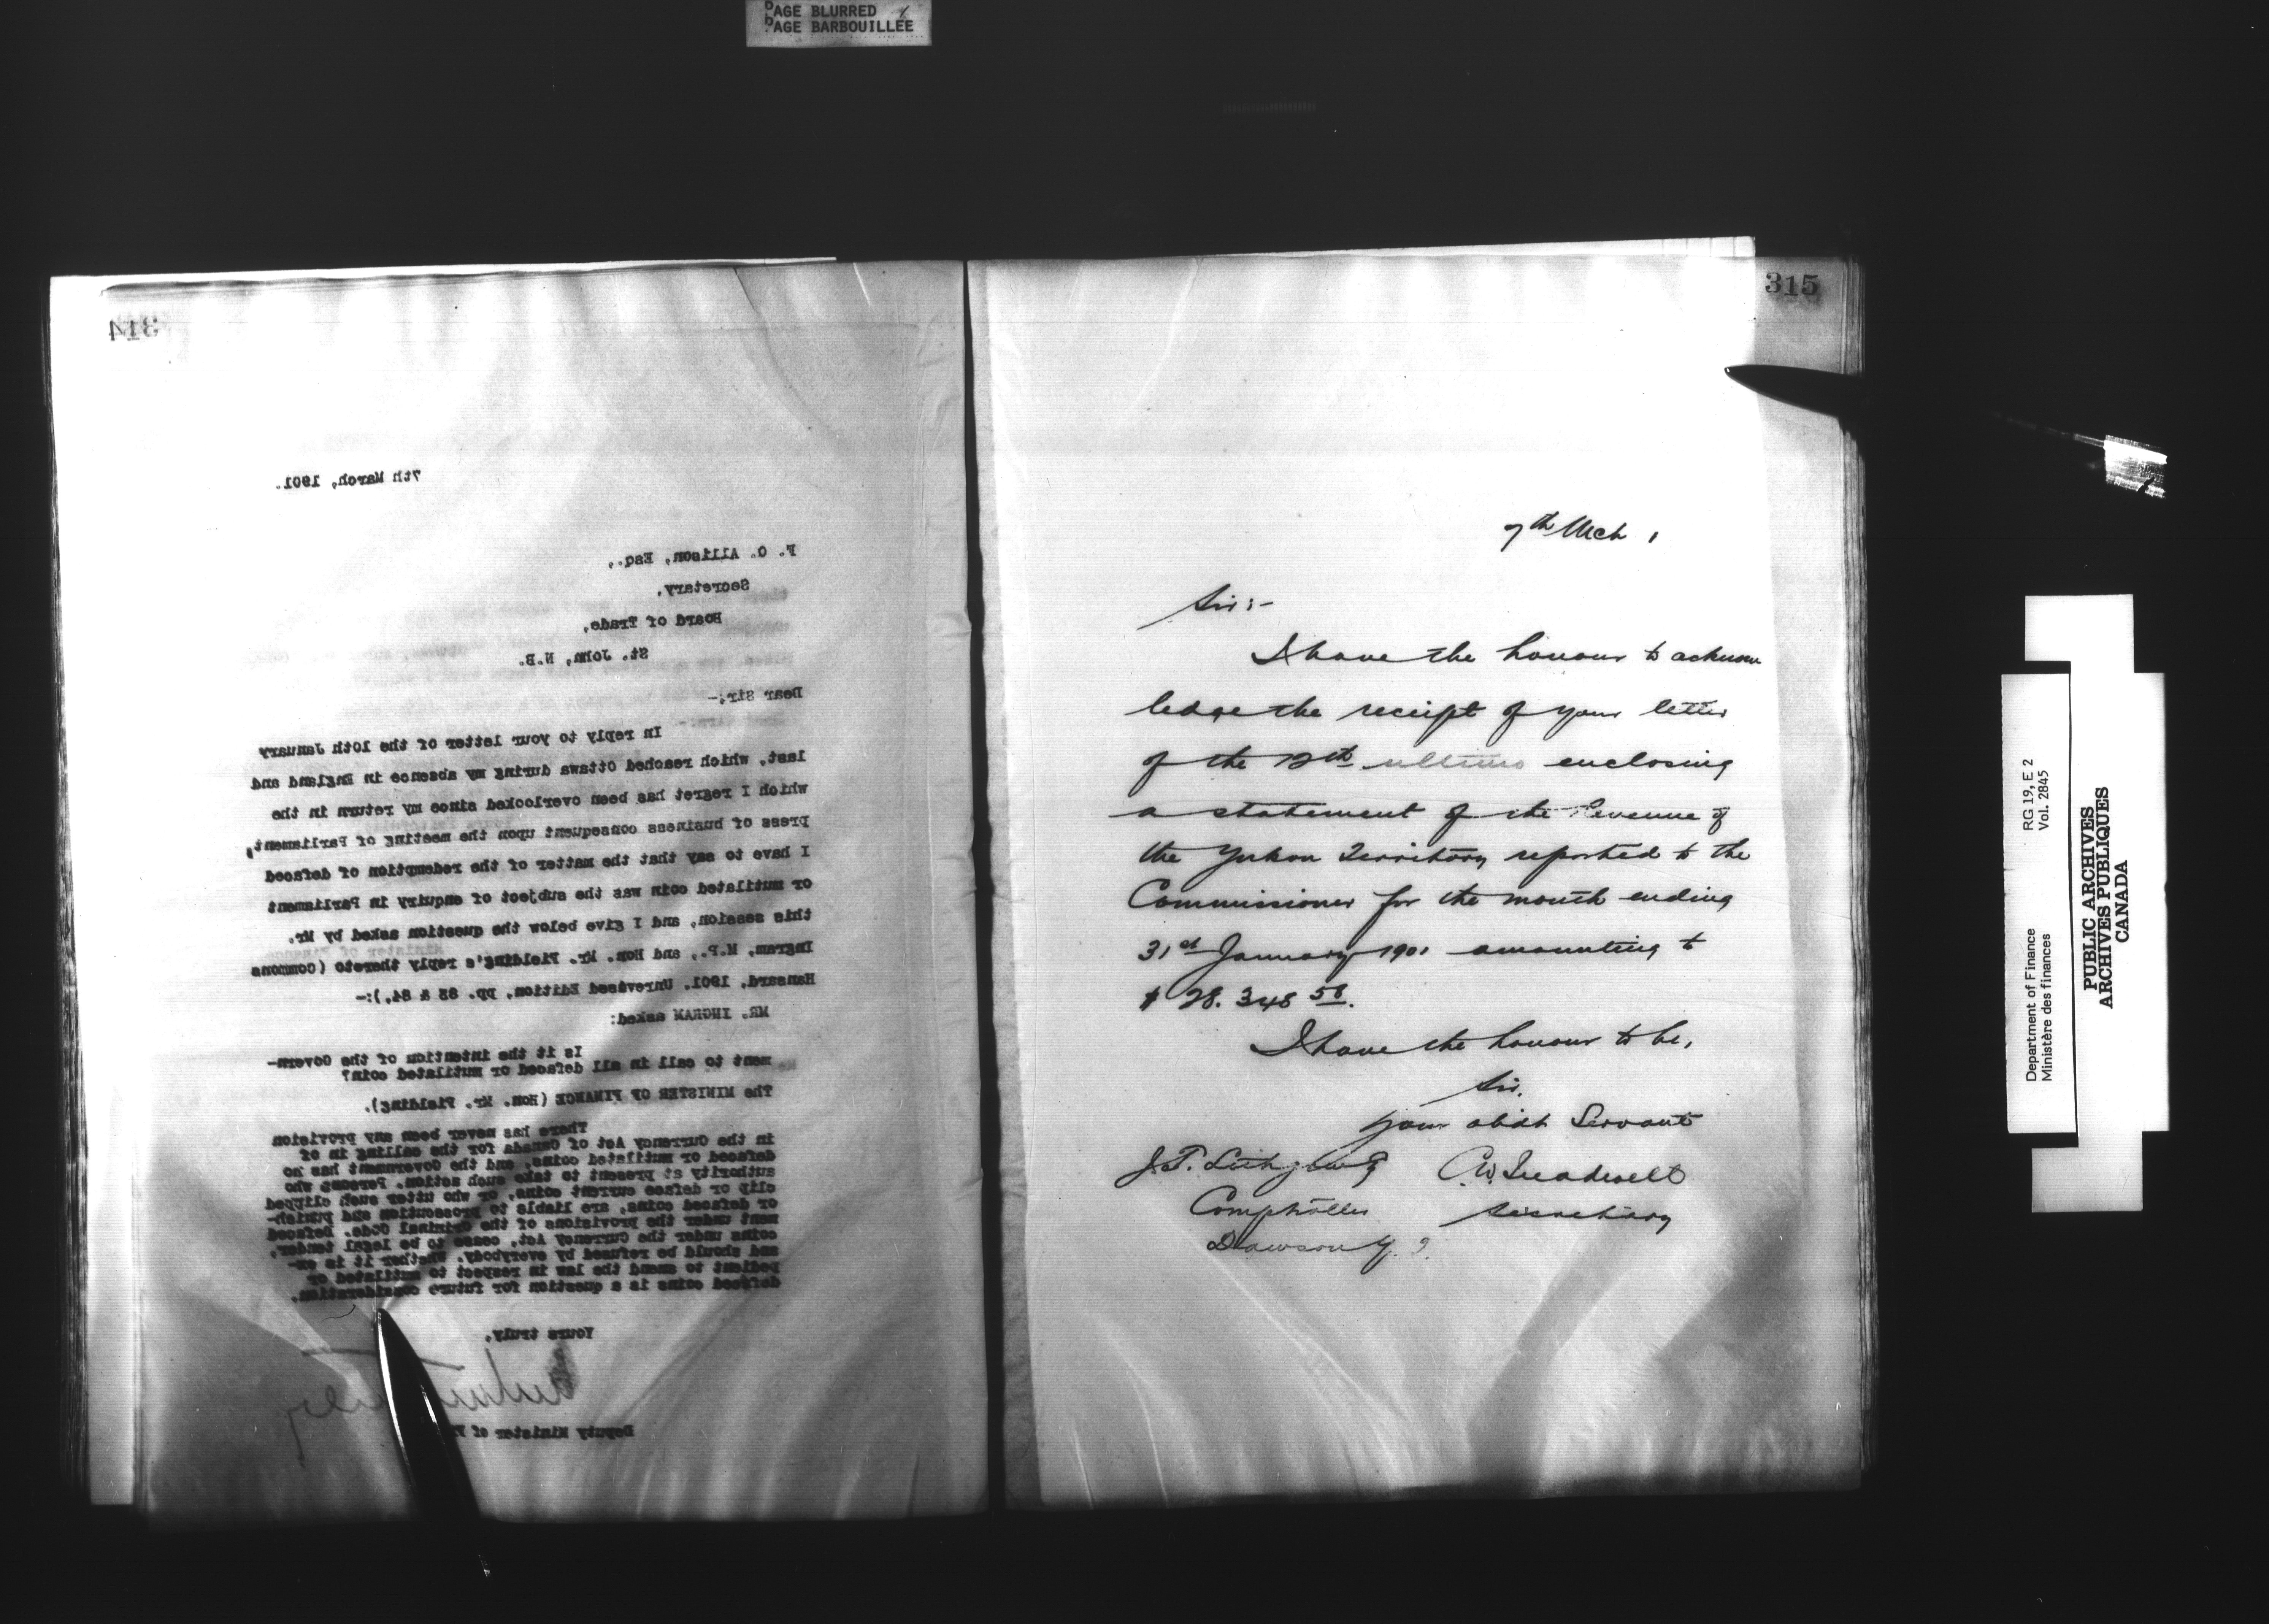 PAGE BLURRED
PAGE BARBOUILLEE
314
7th March, 1901.
F. O. Allison, Esq.,
Secretary,
Board of Trade,
St. John, N.B.
Dear Sir,-
In reply to your letter of the 10th January
last, which reached Ottawa during my absence in England and
which I regret has been overlooked since my return in the
press of business consequent upon the meeting of Parliament,
I have to say that the matter of the redemption of defaced
or mutilated coin was the subject of enquiry in Parliament
this session, and I give below the question asked by Mr.
Ingram, M.P., and Hon. Mr. Fielding's reply thereto (Commons
Hansard, 1901, Unrevised Edition, pp. 83 & 84,):-
MR. INGRAM asked:
Is it the intention of the Govern-
ment to call in all defaced or mutilated coin?
The MINISTER OF FINANCE (Hon. Mr. Fielding).
There has never been any provision
in the Currency Act of Canada for the calling in of
defaced or mutilated coins, and the Government has no
authority at present to take such action. Persons who
clip or deface current coins, or who utter such clipped
or defaced coins, are liable to prosecution and punish-
ment under the provisions of the Criminal Code. Defaced
coins under the Currency Act, cease to be legal tender,
and should be refused by everybody. Whether it is ex-
pedient to amend the law in respect to mutilated or
defaced coins is a question for future consideration.
Yours truly,
Deputy Minister of F
315
7th Mch 1
Sir:-
I have the honour to acknow
ledge the receipt of your letter
of the 12th ultimo enclosing
a statement of the Revenue of
the Yukon Territory reported to the
Commissioner for the month ending
31st January 1901 amounting to
$ 28.348 58.
I have the honour to be,
Sir,
your obdt Servant
J.T. Lithgow Esq
C.W. Treadwell
Comptroller
Secretary
Dawson Y.
Department of Finance
Ministère des finances
RG 19, E 2
Vol. 2845
PUBLIC ARCHIVES
ARCHIVES PUBLIQUES
CANADA